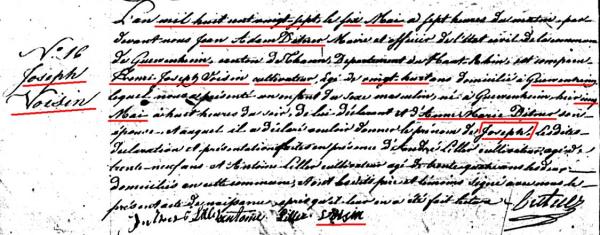 N.° 16
Joseph
Voisin
L'an mil huit cent vingt sept le six Mai a sept heures du matin, par
devant nous Jean Adam Ditner Maire et officier de l'état civil de la commune
de Guewenheim, canton de Thann, Departement du Haut-Rhin, est comparu
Joseph Voisin cultivateur, agé de vingt huit ans domicilié a Guewenheim
lequel nous a présenté un enfant du sexe masculin, né a Guewenheim hier cinq
Mai à huit heures du soir, de lui déclarant et d'Anne Marie Ditner son
épouse. Auquel il a déclaré vouloir donner le prénom de Joseph. Lesdites
déclaration et présentation faites en présence de André Liller cultivateur, agé de
trente neuf ans et Antoine Liller cultivateur agé de trente quatre ans les deux
domiciliés en cette commune, et ont les dits père et témoins signé avec nous le
présent acte de naissance après qu'il leur en a été fait lecture
antoine Liller Voisin